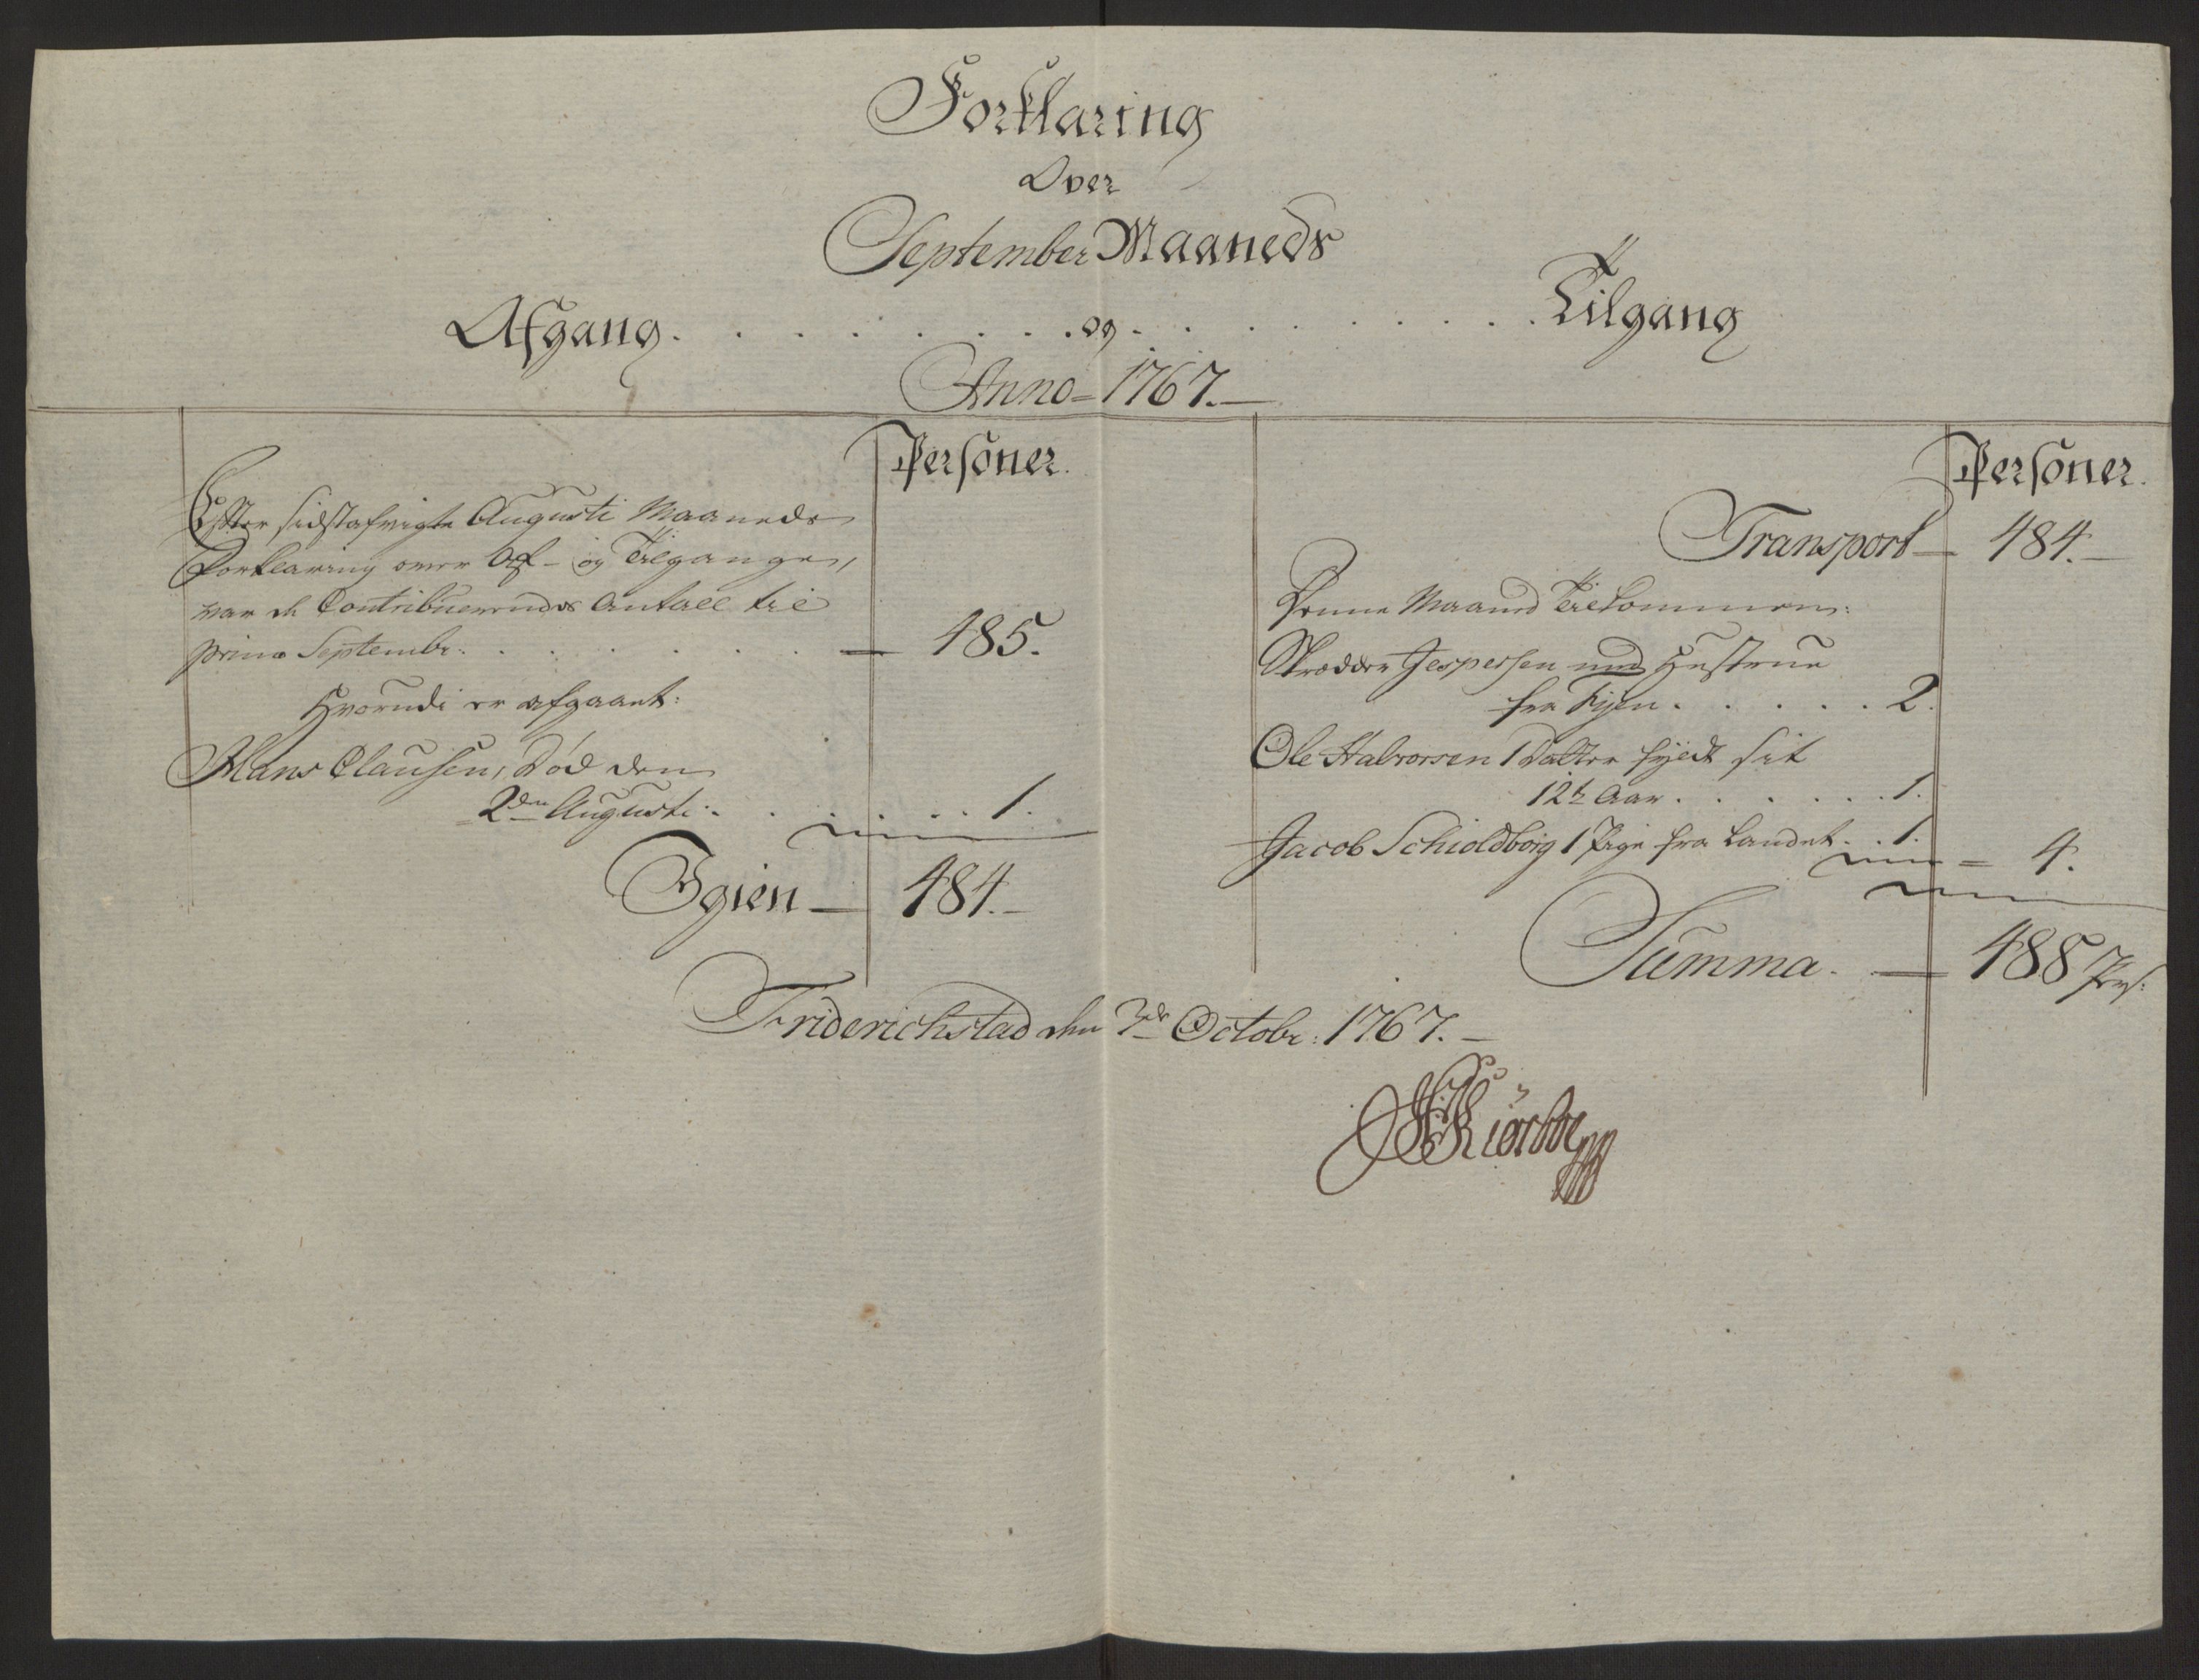 Forklaring
Over
September Maaneds
Afgang. . . . . . . . og . . . . . . . . Tilgang
Anno = 1767. —
Personer.
Efter sidstafvigte Augusti Maaneds
Forklaring over Af- og Tilgangen,
var de Contribuerendes Antall til
primo Septembr: . . . . . . . — 485.
Hvorudi er afgaaet:
Hans Clausen, Død den
2den Augusti . . . . . . 1.
Igien — 484. —
Personer.
Transport — 484. —
Denne Maaned Tilkommen:
Skrædder Jespersen med Hustrue
fra Byen . . . . . 2.
Ole Halvorsen 1 Datter fyldt sit
12te Aar . . . . . . 1.
Jacob Schioldborg 1 Pige fra Landet . . 1.
= 4.
Summa. — 488 Pers:
Friderichstad den 3de Octobr: 1767. —
Kiørboe